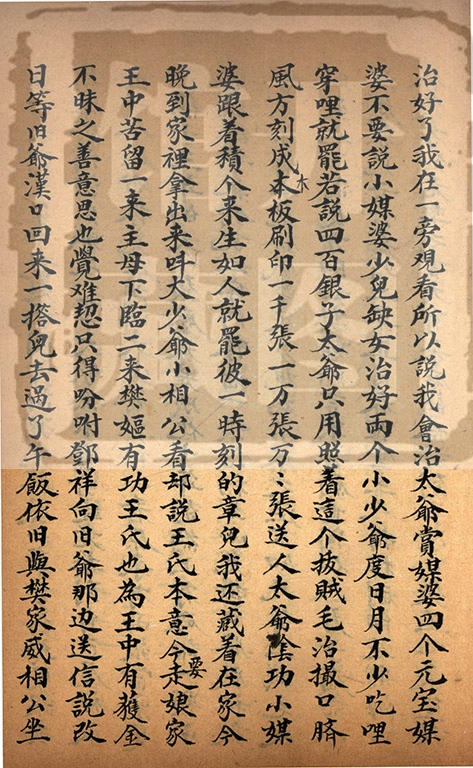 治好了我在一旁观看所以說我會治太爺賞媒婆四个元宝媒
婆不要說小媒婆少兒缺女治好両个小少爺度日月不少吃哩
穿哩就罷若說四百銀子太爺只用照着這个拔賊毛治撮口臍
風方刻成木板刷印一千張一万張万〻張送人太爺陰功小媒
婆跟着積个来生如人就罷彼一時刻的章兒我还藏着在家今
晚到家裡拿出来呌大少爺小相公看却說王氏本意今要走娘家
王中苦留一来主母下臨二来樊嫗有功王氏也為王中有獲金
不昧之善意思也覺难恝只得吩咐鄧祥向旧爺那边送信說改
日等旧爺漢口回来一搭兒去過了午飯依旧與樊家戚相公坐